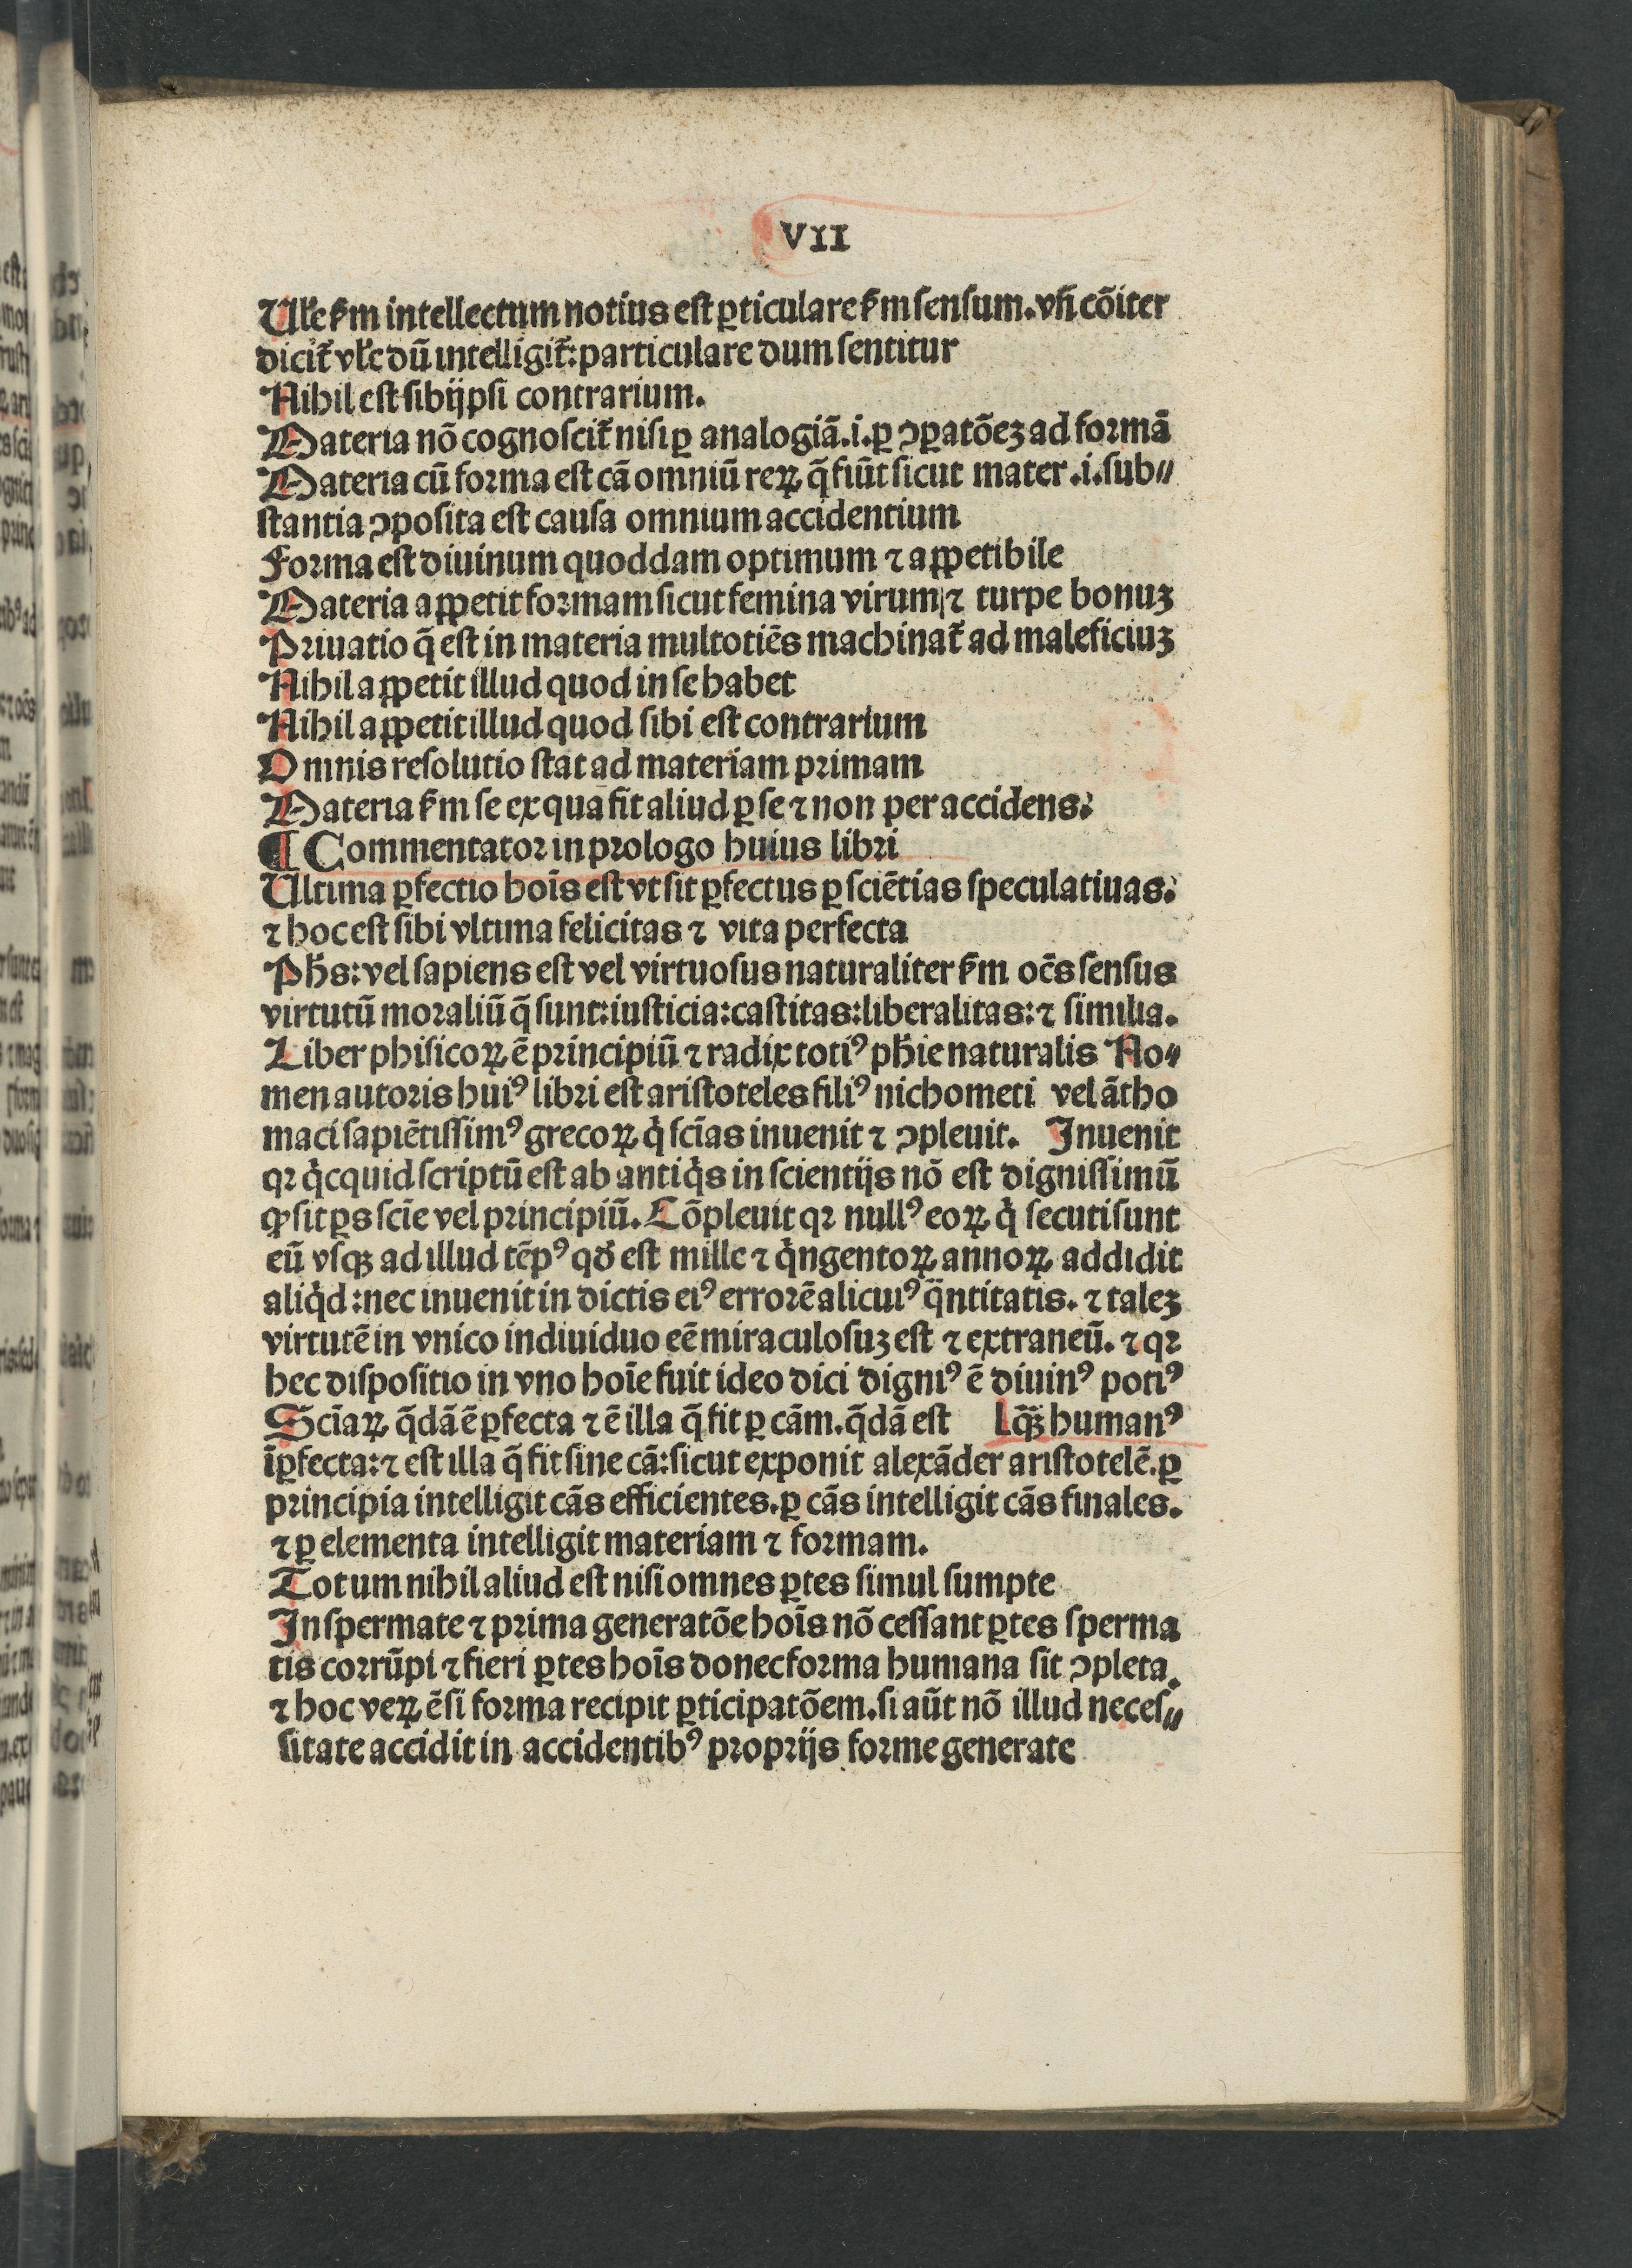 VII
Vl̃e ẜm intellectum notius est ꝑticulare ẜm sensum. vñ cõiter
dicit᷑ vl̃e dũ intelligit᷑: particulare dum sentitur
Nihil est sibijpsi contrarium.
Materia nõ cognoscit᷑ nisi ꝑ analogiã .i. ꝑ ↄꝑatõeꝫ ad formã
Materia cũ forma est cã omniũ reꝝ q̃ fiũt sicut mater .i. sub⸗
stantia ↄposita est causa omnium accidentium
Forma est diuinum quoddam optimum ⁊ appetibile
Materia appetit formam sicut femina virum ⁊ turpe bonuꝫ
Priuatio q̃ est in materia multotiẽs machinat᷑ ad maleficiuꝫ
Nihil appetit illud quod in se habet
Nihil appetit illud quod sibi est contrarium
Omnis resolutio stat ad materiam primam
Materia ẜm se ex qua fit aliud ꝑ se ⁊ non per accidens.
¶ Commentator in prologo huius libri
Ultima ꝑfectio hoĩs est vt sit ꝑfectus ꝑ sciẽtias speculatiuas.
⁊ hoc est sibi vltima felicitas ⁊ vita perfecta
Ph̃s: vel sapiens est vel virtuosus naturaliter ẜm oẽs sensus
virtutũ moraliũ q̃ sunt: iusticia: castitas: liberalitas: ⁊ similia.
Liber phisicoꝝ ẽ principiũ ⁊ radix totiꝰ ph̃ie naturalis No⸗
men autoris huiꝰ libri est aristoteles filiꝰ nichometi vel ãtho
maci sapiẽtissimꝰ grecoꝝ q̇ scĩas inuenit ⁊ ↄpleuit. Inuenit
qꝛ q̇cquid scriptũ est ab antiq̇s in scientijs nõ est dignissimũ
ꝙ sit ꝑs scĩe vel principiũ. Cõpleuit qꝛ nullꝰ eoꝝ q̇ secuti sunt
eũ vsqꝫ ad illud tẽpꝰ qđ est mille ⁊ q̇ngentoꝝ annoꝝ addidit
aliq̇d: nec inuenit in dictis eiꝰ errorẽ alicuiꝰ q̃ntitatis. ⁊ taleꝫ
virtutẽ in vnico indiuiduo eẽ miraculosuꝫ est ⁊ extraneũ. ⁊ qꝛ
hec dispositio in vno hoĩe fuit ideo dici digniꝰ ẽ diuinꝰ potiꝰ
Scĩaꝝ q̃dã ẽ ꝑfecta ⁊ ẽ illa q̃ fit ꝑ cãm. q̃dã est lq̃ꝫ humanꝰ
ĩꝑfecta: ⁊ est illa q̃ fit sine cã: sicut exponit alexãder aristotelẽ. ꝑ
principia intelligit cãs efficientes. ꝑ cãs intelligit cãs finales.
⁊ ꝑ elementa intelligit materiam ⁊ formam.
Totum nihil aliud est nisi omnes ꝑtes simul sumpte
In spermate ⁊ prima generatõe hoĩs nõ cessant ꝑtes sperma
tis corrũpi ⁊ fieri ꝑtes hoĩs donec forma humana sit ↄpleta.
⁊ hoc veꝝ ẽ si forma recipit ꝑticipatõem. si aũt nõ illud neces⸗
sitate accidit in accidentibꝰ proprijs forme generate